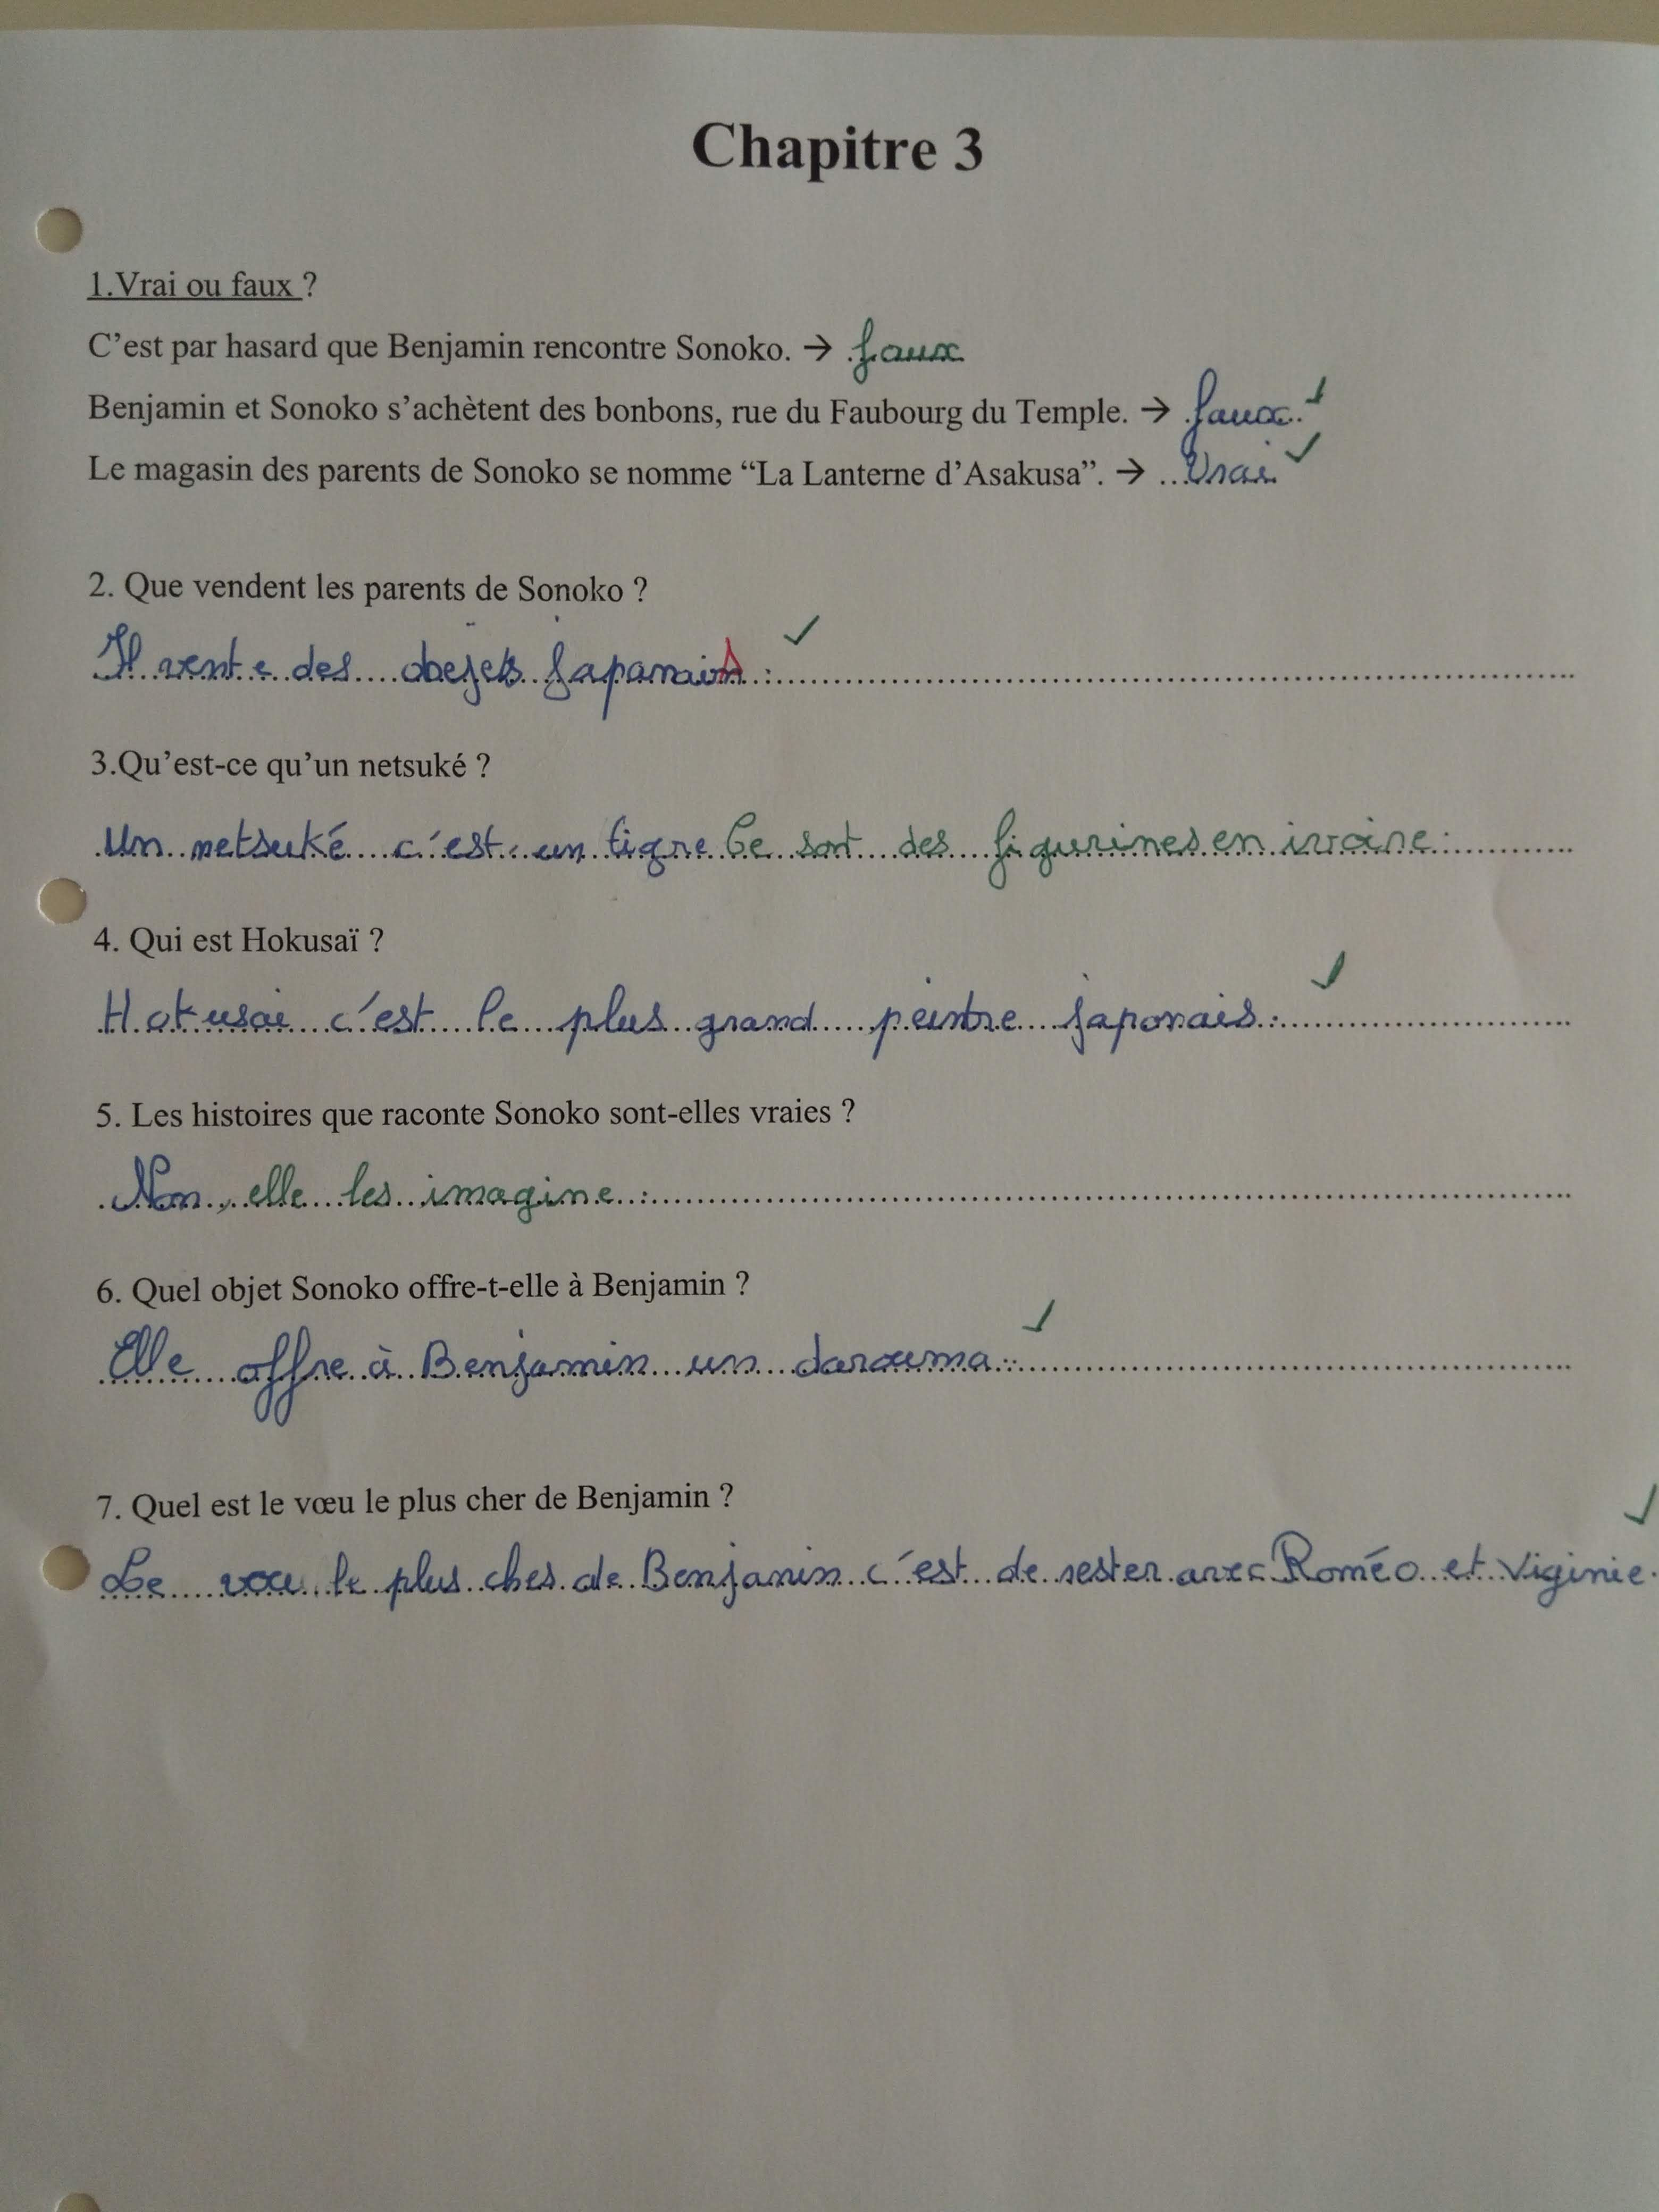 Chapitre 3
1.Vrai ou faux ?
C'est par hasard que Benjamin rencontre Sonoko. → faux
Benjamin et Sonoko s'achètent des bonbons, rue du Faubourg du Temple. → faux.
Le magasin des parents de Sonoko se nomme “La Lanterne d'Asakusa”. → Vrai
2. Que vendent les parents de Sonoko ?
Il vent e des obejets Japanais.
3.Qu'est-ce qu'un netsuké ?
Un netsuké c'est un tigre Ce sont des figurines en ivoire.
4. Qui est Hokusaï ?
Hokusai c'est le plus grand peintre japonais.
5. Les histoires que raconte Sonoko sont-elles vraies ?
Non, elle les imagine.
6. Quel objet Sonoko offre-t-elle à Benjamin ?
Elle offre à Benjamin un darouma.
7. Quel est le vœu le plus cher de Benjamin ?
Le le plus cher de Benjamin c'est de rester avec Roméo et Viginie.